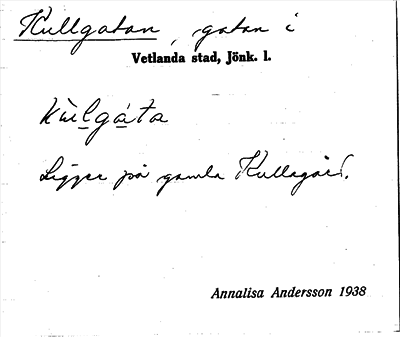 Kullgatan, gatan i
Vetlanda stad, Jönk. l.
kùlgáta
Ligger på gamla Kullagård.
Annalisa Andersson 1938